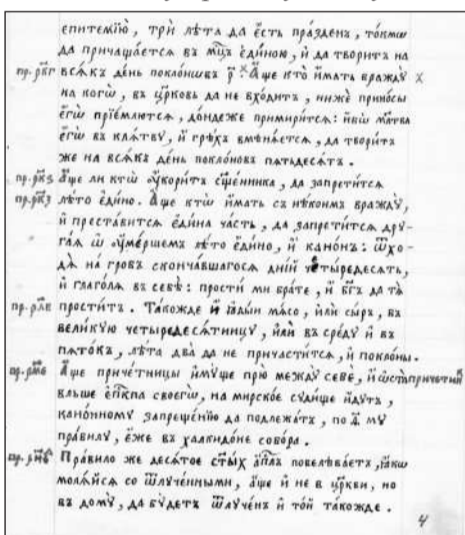 епитемїю, трѝ лѣта да є҆сть пра́зденъ, то́кмѡ
да причаща́етсѧ въ мц҃ъ є҆ди́ною, и҆ да твори́тъ на
пр. рк҃г всѧ́къ де́нь покло́нѡвъ р҃. А҆́ще кто̀ и҆́мать враждꙋ̀ х
на кого̀, въ цр҃ковь да не вхо́дитъ, нижѐ прино́сы
є҆гѡ̀ прїе́млютсѧ, до́ндеже примири́тсѧ: и҆́бѡ мл҃тва
є҆гѡ̀ въ клѧ́твꙋ, и҆ грѣ́хъ вмѣнѧ́етсѧ, да твори́тъ
же на всѧ́къ де́нь покло́новъ пѧтьдесѧ́тъ.
пр. рк҃ѕ А҆́ще ли кто̀ ᲂу҆кори́тъ сщ҃е́нника, да запрети́тсѧ
пр. рк҃з лѣ́то є҆ди́но. А҆́ще кто̀ и҆́мать съ нѣ́коимъ враждꙋ̀,
и҆ преста́витсѧ є҆ди́на ча́сть, да запрети́тсѧ дрꙋ-
га́ѧ ѡ҆ ᲂу҆ме́ршемъ лѣ́то є҆ди́но, и҆ кано́нъ: ѿхо-
дѧ̀ на гро́бъ сконча́вшагосѧ дні́й четы́редесѧть,
и҆ глаго́лѧ въ себѣ̀: прости́ ми бра́те, и҆ бг҃ъ да тѧ̀
пр. рл҃в прости́тъ. Та́кожде и҆ ꙗ҆ды́й мѧ́со, и҆лѝ сы́ръ, въ
вели́кꙋю четыредесѧ́тницꙋ, и҆лѝ въ сре́дꙋ и҆ въ
пѧто́къ, лѣ́та два̀ да не причасти́тсѧ, и҆ покло́ны.
пр. рм҃е А҆́ще приче́тницы и҆мꙋ́ще прю̀ междꙋ̀ себѐ, и҆
вльше є҆пⷭ҇кпа своегѡ̀, на мирско́е сꙋди́ще и҆дꙋ́тъ,
кано́нномꙋ запреще́нїю да подлежа́тъ, по д҃ мꙋ
пра́вилꙋ, є҆́же въ халкидо́не собо́ра.
Пра́вило же десѧ́тое ст҃ы́хъ а҆пⷭ҇лъ повелѣва́етъ, ꙗ҆́кѡ
молѧ́йсѧ со ѿлꙋче́нными, а҆́ще и҆ не в цр҃кви, но
въ домꙋ̀, да бꙋ́детъ ѿлꙋче́нъ и҆ то́й та́кожде.
4